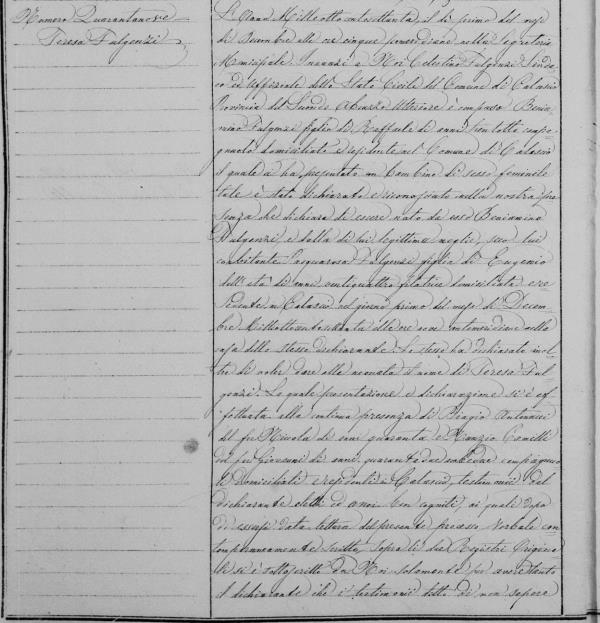 Numero Quarantanove
Teresa Fulgenzi
L'Anno Milleottocentosettanta, il dì primo del mese
di Decembre alle ore cinque pomeridiane nella Segreteria
Municipale. Innanzi a Noi Celestino Fulgenzi Sinda-
co ed Uffiziale dello Stato Civile del Comune di Calascio
Provincia del Secondo Abruzzo Ulteriore è comparso Beniam-
mino Fulgenzi figlio di Raffaele di anni trentotto campa-
gnuolo domiciliato e residente nel Comune di Calascio
il quale ci ha presentato un bambino di sesso femminile
tale è stato dichiarato e riconosciuto nella nostra pre-
senza che dichiara di essere nato da esso Beniamino
Fulgenzi, e dalla di lui legittima moglie, seco lui
coabitante Pasquarosa Fulgenzi figlia di Eugenio
dell'età di anni ventiquattro filatrice domiciliata e re-
sidente in Calascio nel giorno primo del mese di Decem-
bre Milleottocentosettanta alle ore nove antimeridiane nella
casa dello stesso dichiarante. Lo stesso ha dichiarato inol-
tre di voler dare alla neonata il nome di Teresa Ful-
genzi. La quale presentazione e dichiarazione si è ef-
fettuata alla continua presenza di Biagio
del fu Nicola di anni quaranta e Nunzio Comelli
del fu Giovanni di anni quarantadue ambedue campagnuo-
li domiciliati e residenti in Calascio, testimonii dal
dichiarante eletti ed a noi ben cogniti, ai quali dopo
di essersi data lettura del presente processo verbale con-
temporaneamente scritto sopra li due Registri Origina-
li si è sottoscritto da Noi solamente per aver detto
il dichiarante che i testimonii tutti di non sapere